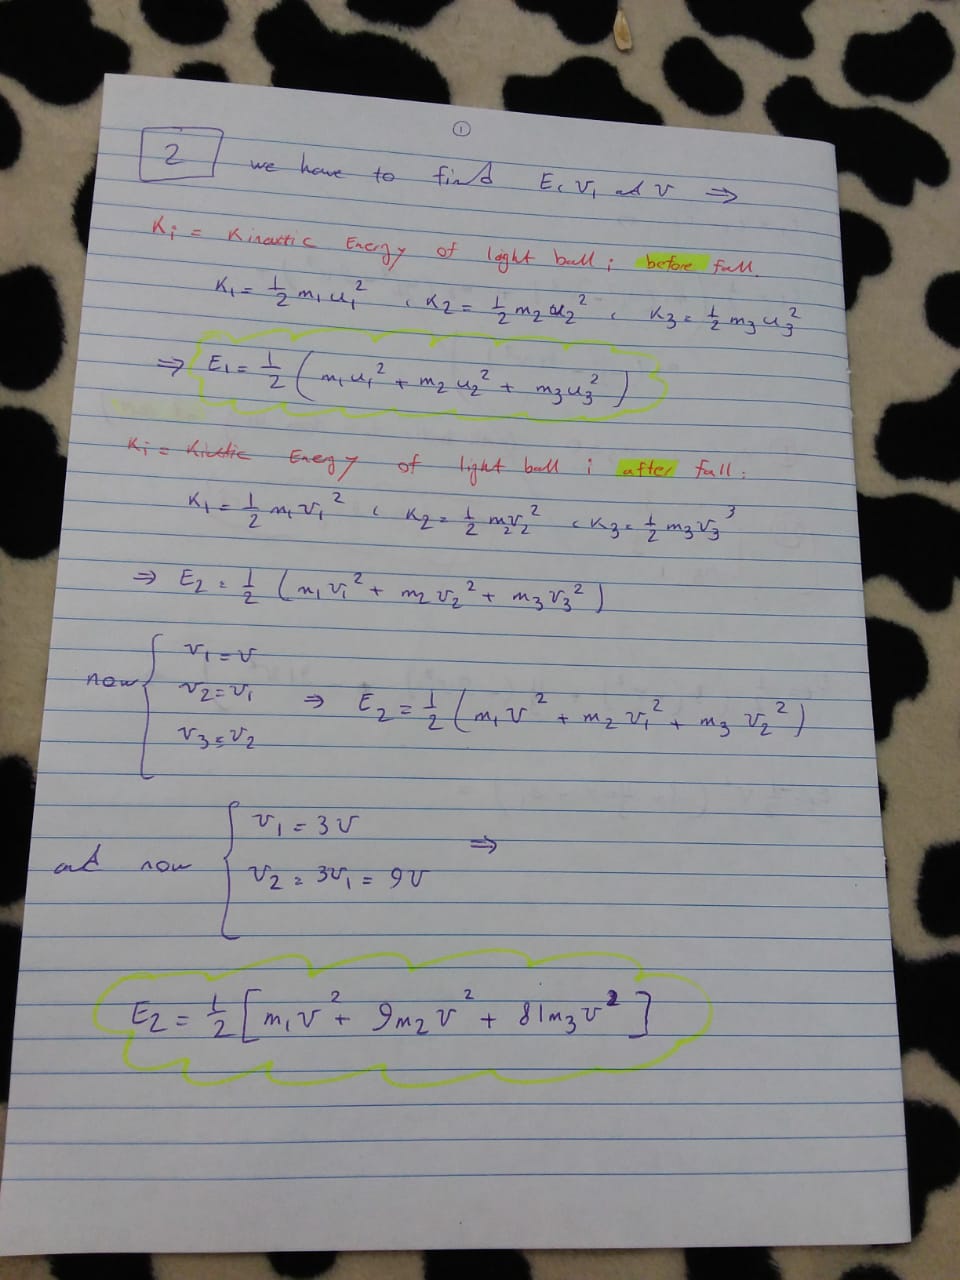 ①
2 we have to find E, v₁ and v ⇒
Kᵢ = Kinactic Energy of light ball i before fall.
K₁ = 1/2 m₁ u₁² , K₂ = 1/2 m₂ u₂² , K₃ = 1/2 m₃ u₃²
⇒ E₁ = 1/2 ( m₁ u₁² + m₂ u₂² + m₃ u₃² )
Kᵢ = Kinctic Energy of light ball i after fall.
K₁ = 1/2 m₁ v₁² , K₂ = 1/2 m₂ v₂² , K₃ = 1/2 m₃ v₃³
⇒ E₂ = 1/2 ( m₁ v₁² + m₂ v₂² + m₃ v₃² )
now { v₁ = v
v₂ = v₁ ⇒ E₂ = 1/2 ( m₁ v² + m₂ v₁² + m₃ v₂² )
v₃ = v₂
and now { v₁ = 3v ⇒
v₂ = 3v₁ = 9v
E₂ = 1/2 [ m₁ v² + 9m₂ v² + 81m₃ v² ]